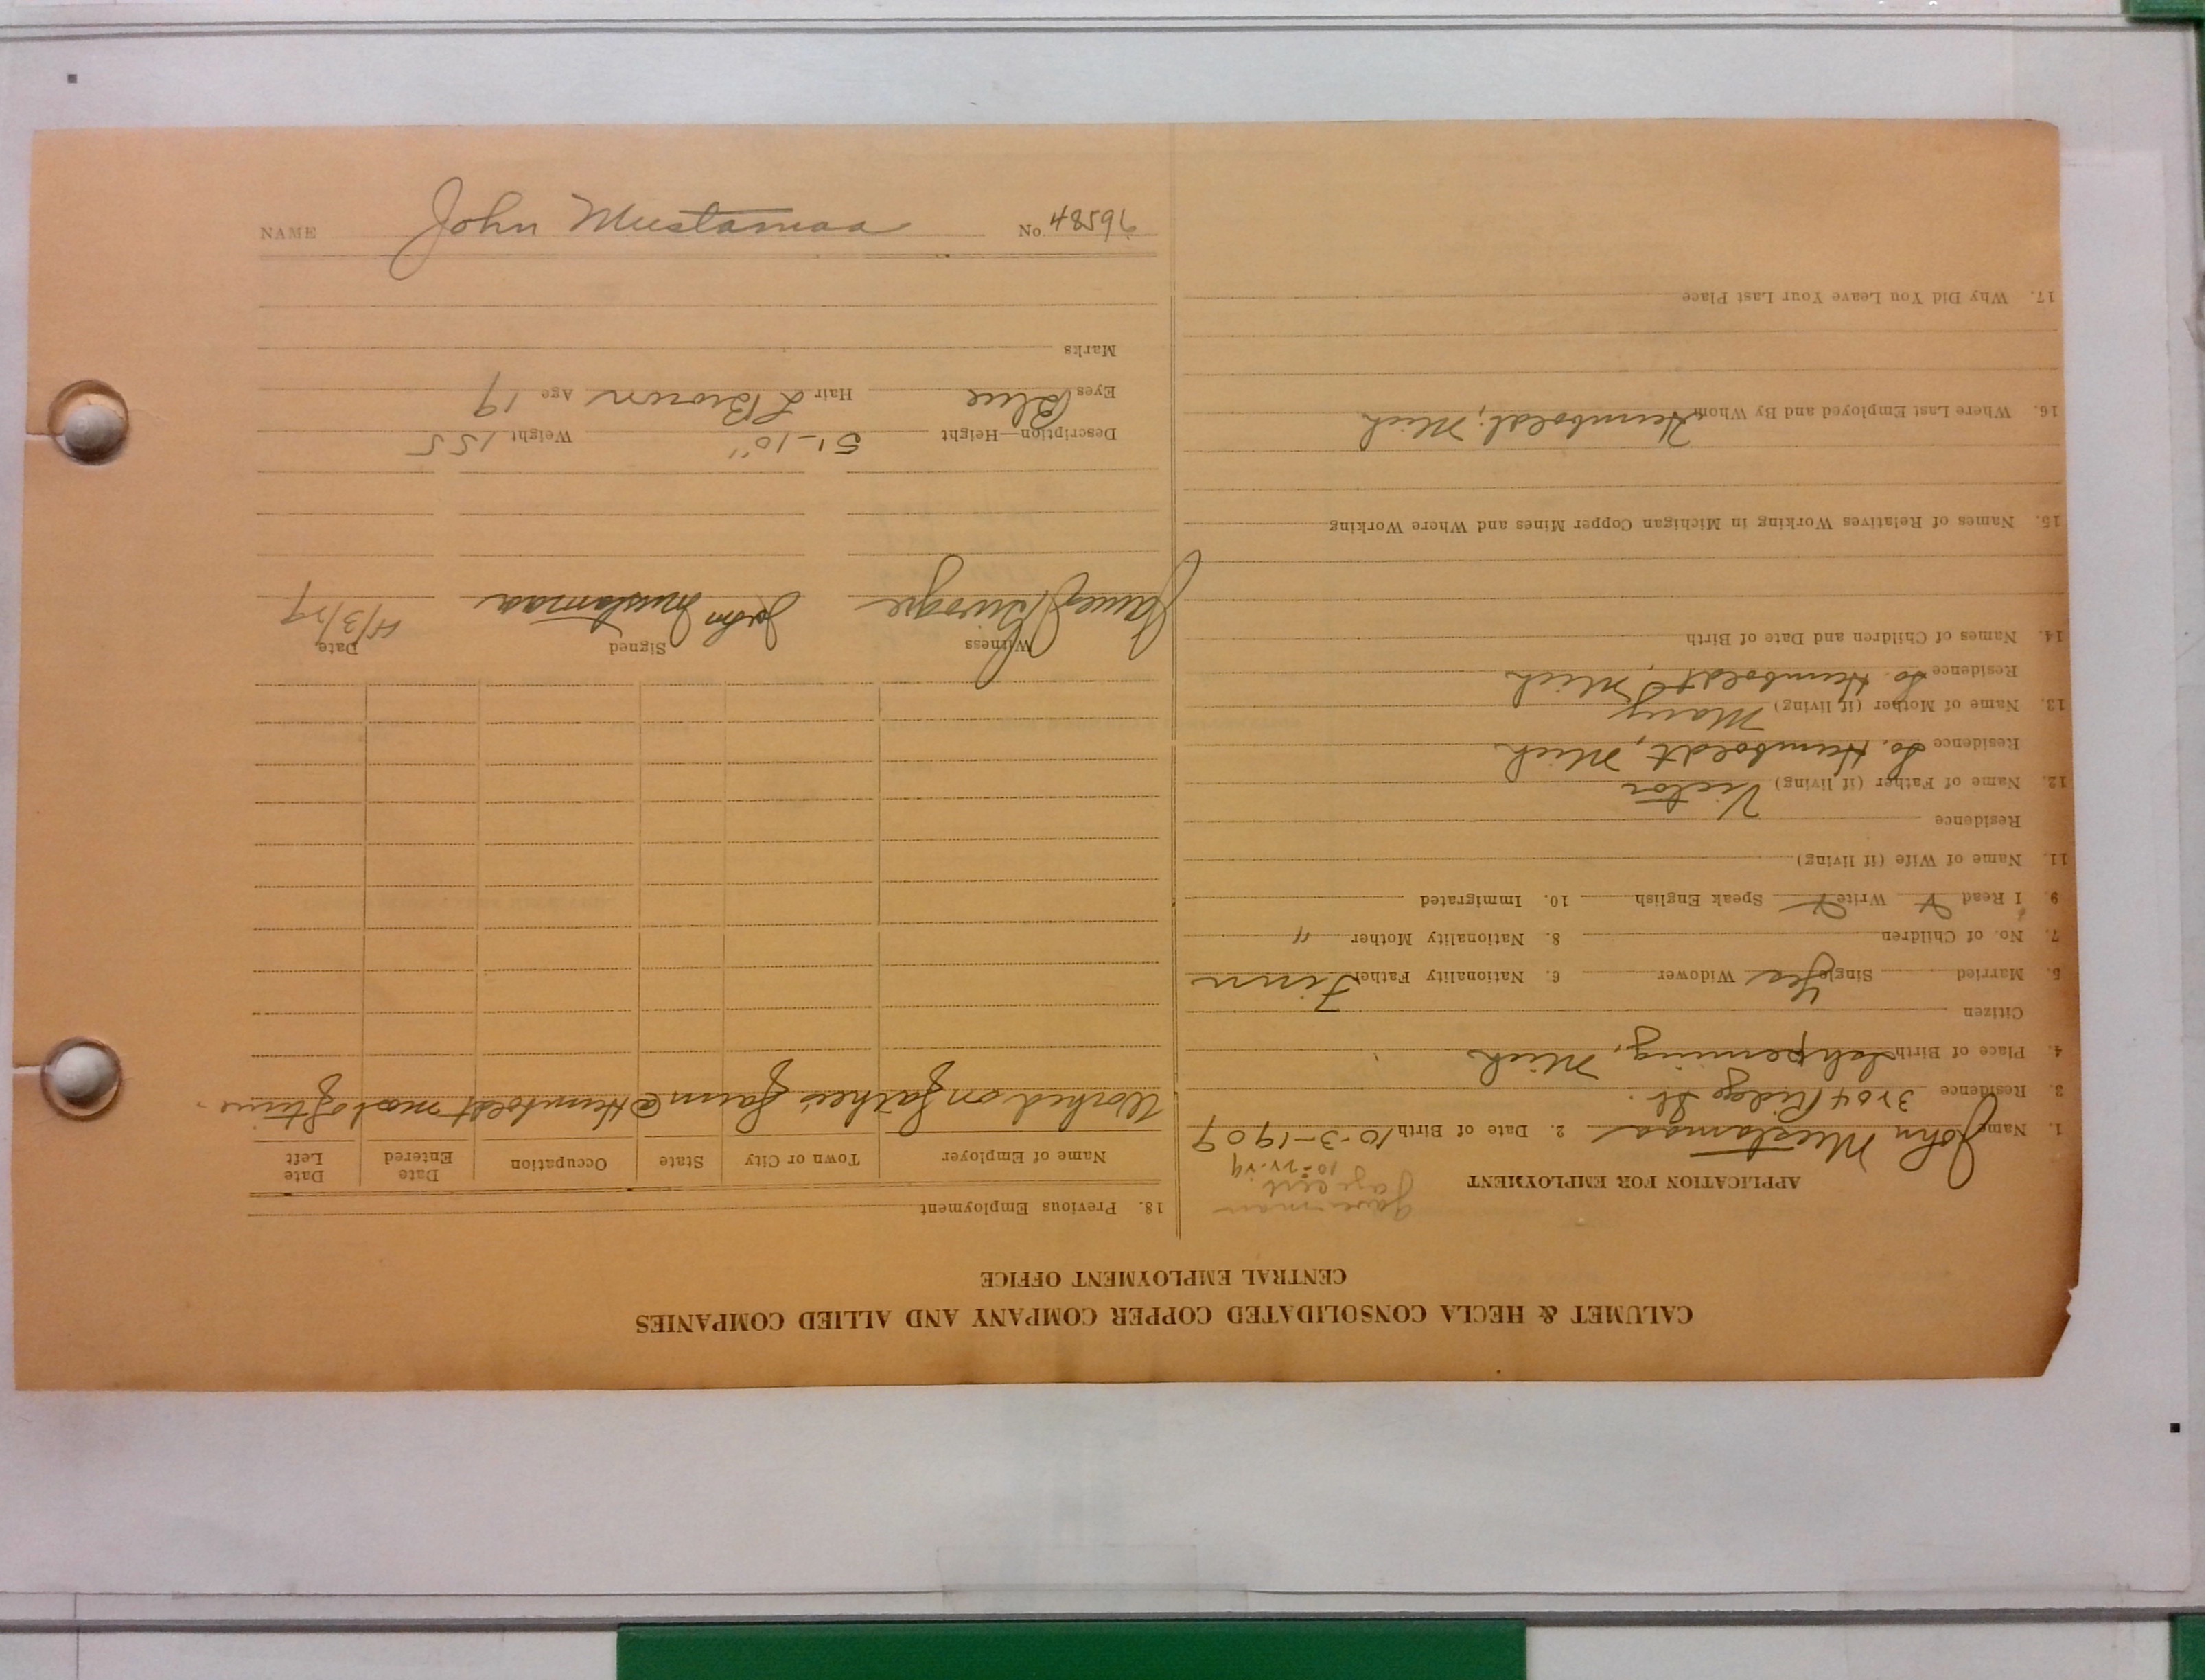 CALUMET & HECLA CONSOLIDATED COPPER COMPANY AND ALLIED COMPANIES
CENTRAL EMPLOYMENT OFFICE
APPLICATION FOR EMPLOYMENT
1. Name John Mustamaa 2. Date of Birth 10-3-1909
3. Residence 3204 Ridge St.
4. Place of Birth Ishpeming, Mich
Citizen
5. Married Single Yes Widower 6. Nationality Father Finn
7. No. of Children 8. Nationality Mother "
9. I Read Write Speak English 10. Immigrated
11. Name of Wife (if living)
Residence
12. Name of Father (if living) Victor
Residence So. Humboldt, Mich
13. Name of Mother (if living) Mary
Residence So. Humboldt, Mich
14. Names of Children and Date of Birth
15. Names of Relatives Working in Michigan Copper Mines and Where Working
16. Where Last Employed and By Whom Humboldt, Mich
17. Why Did You Leave Your Last Place
18. Previous Employment
Name of Employer Town or City State Occupation Date Entered Date Left
Worked on father's farm @ Humboldt most of time.
Witness Signed Date
James John Mustamaa
Description—Height 5'-10" Weight 155
Eyes Blue Hair L Brown Age 19
Marks
NAME John Mustamaa No. 48596